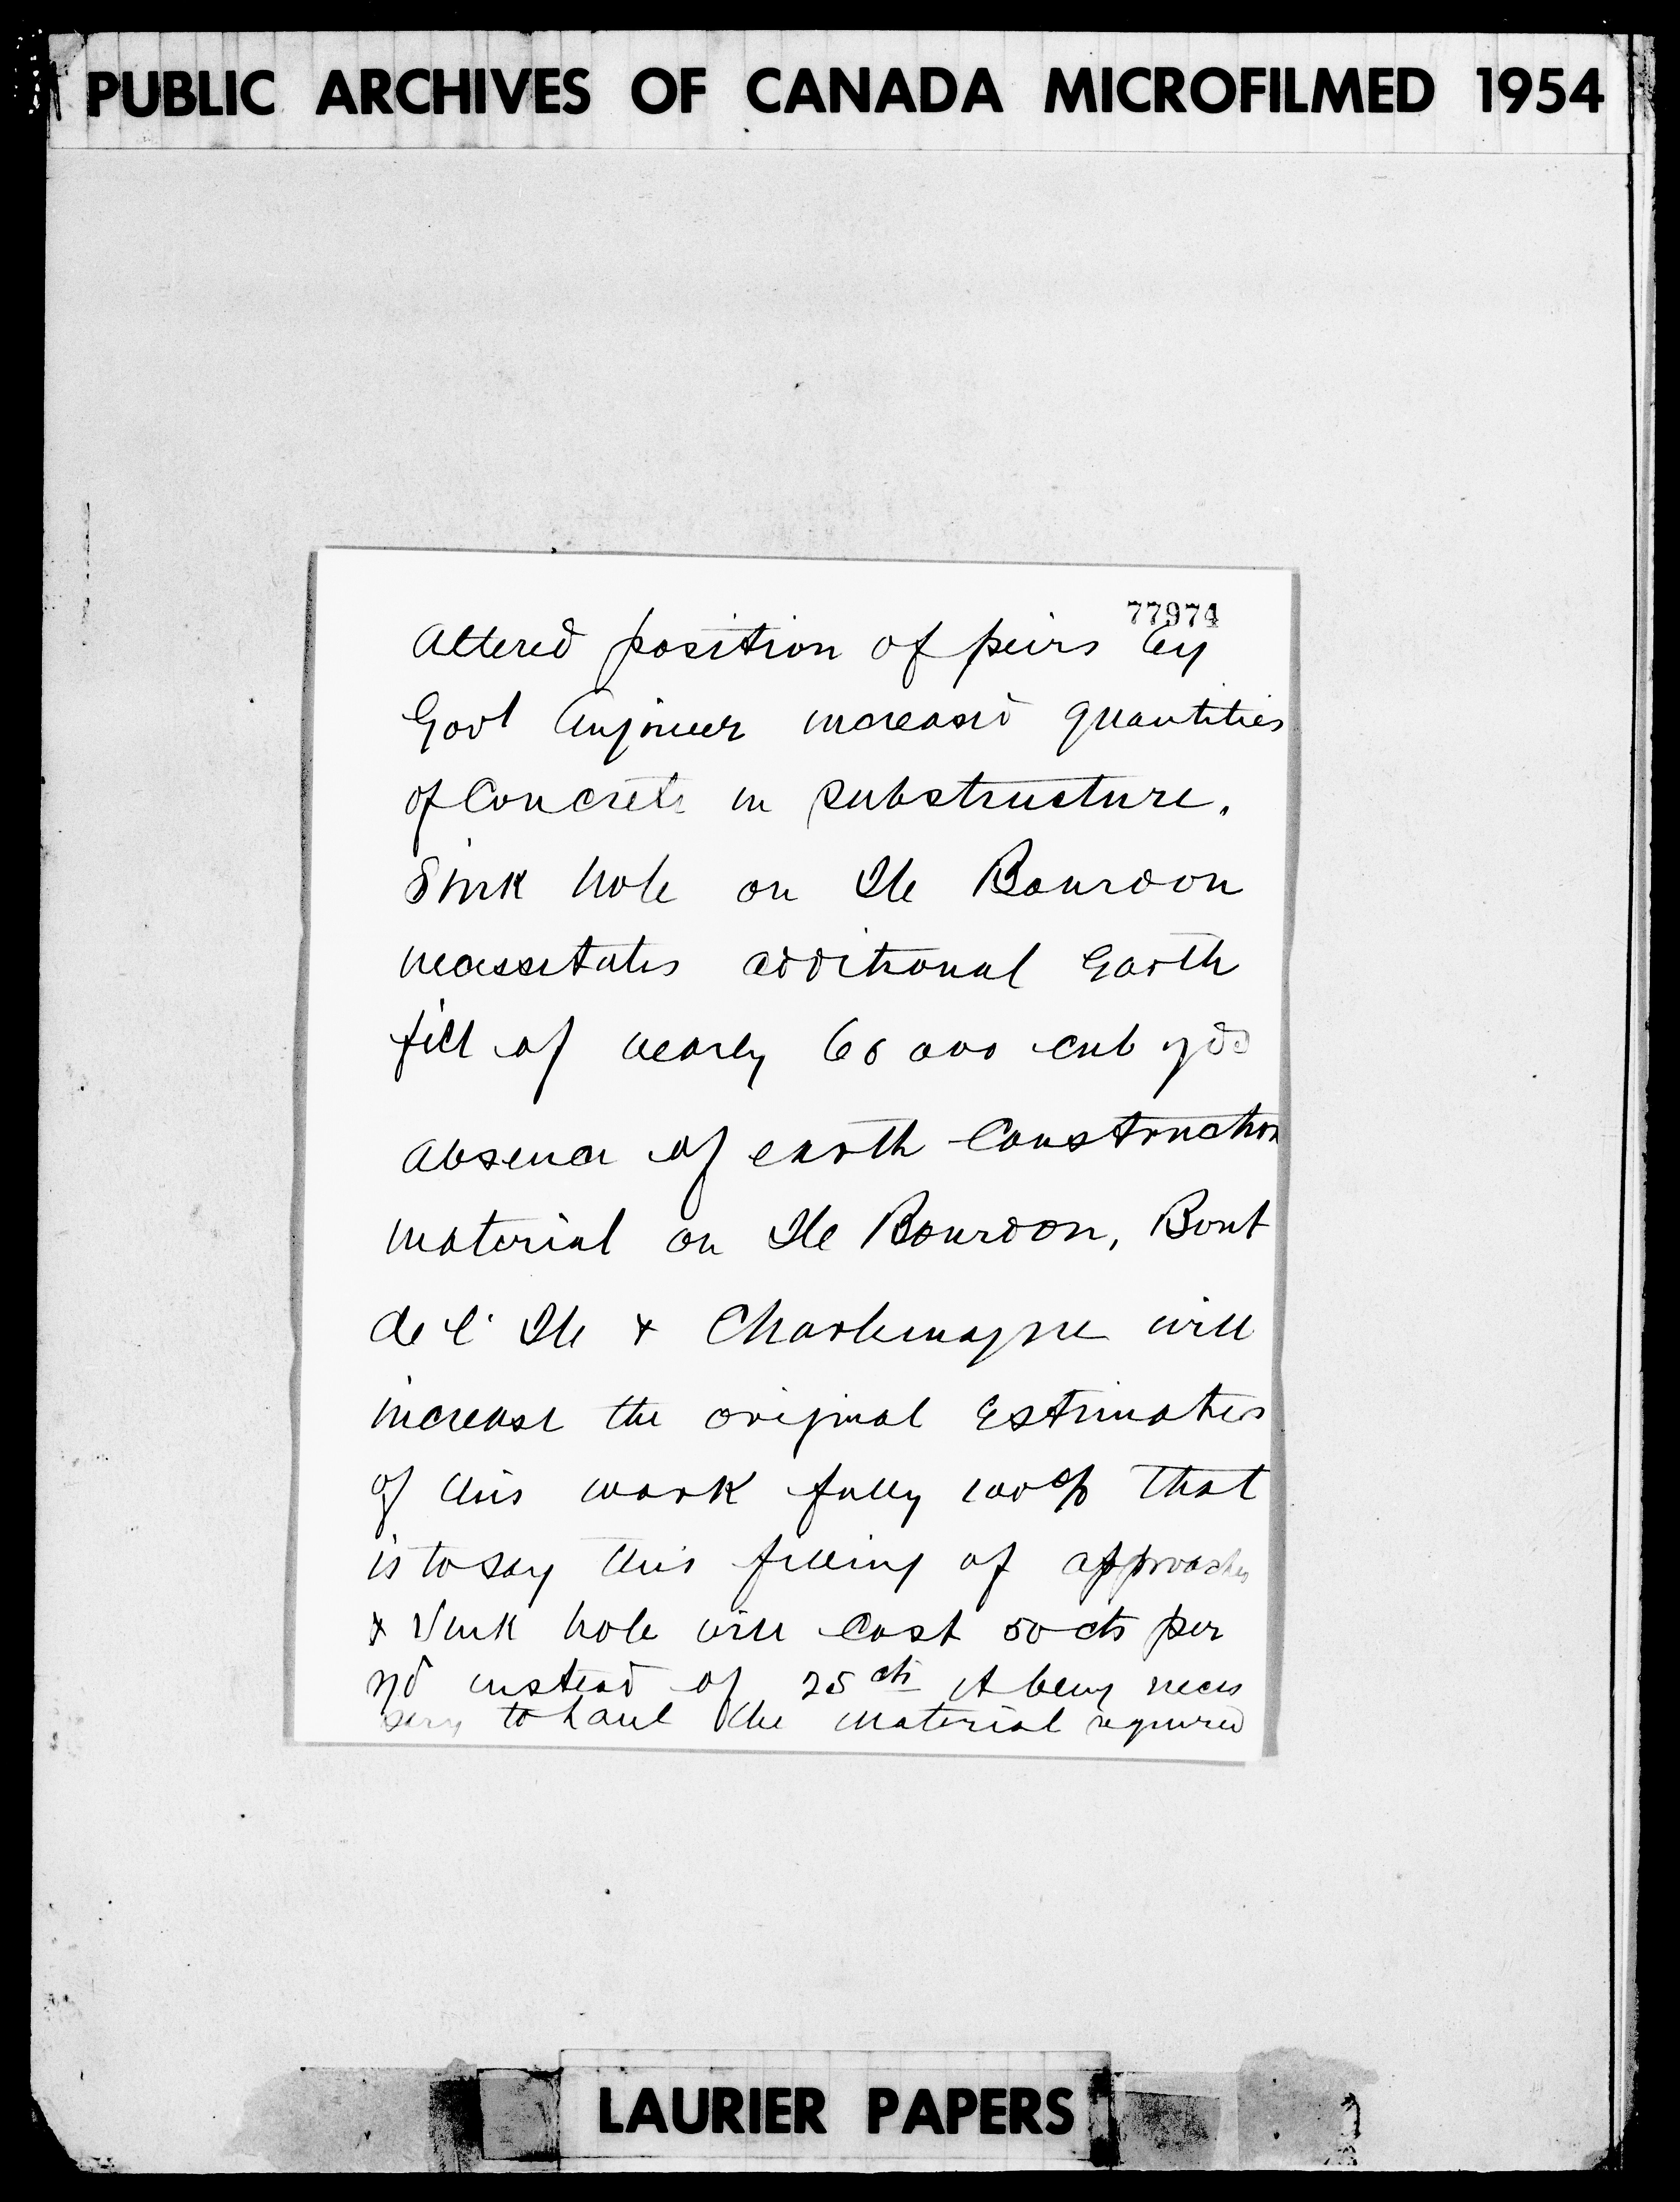 PUBLIC ARCHIVES OF CANADA MICROFILMED 1954
77974
Altered position of peirs by
Govt Engineer increased quantities
of Concrete in substructure.
Sink hole on Ile Bourdon
necessitates additional Earth
fill of nearly 60 000 cub yds
absence of earth Construction
material on Ile Bourdon, Bout
de l' Ile & Charlemagne will
increase the original Estimates
of this work fully 100% that
is to say this filling of approaches
& Sink hole will Cost 50 cts per
yd instead of 25 cts it being neces
sary to haul the material required
LAURIER PAPERS